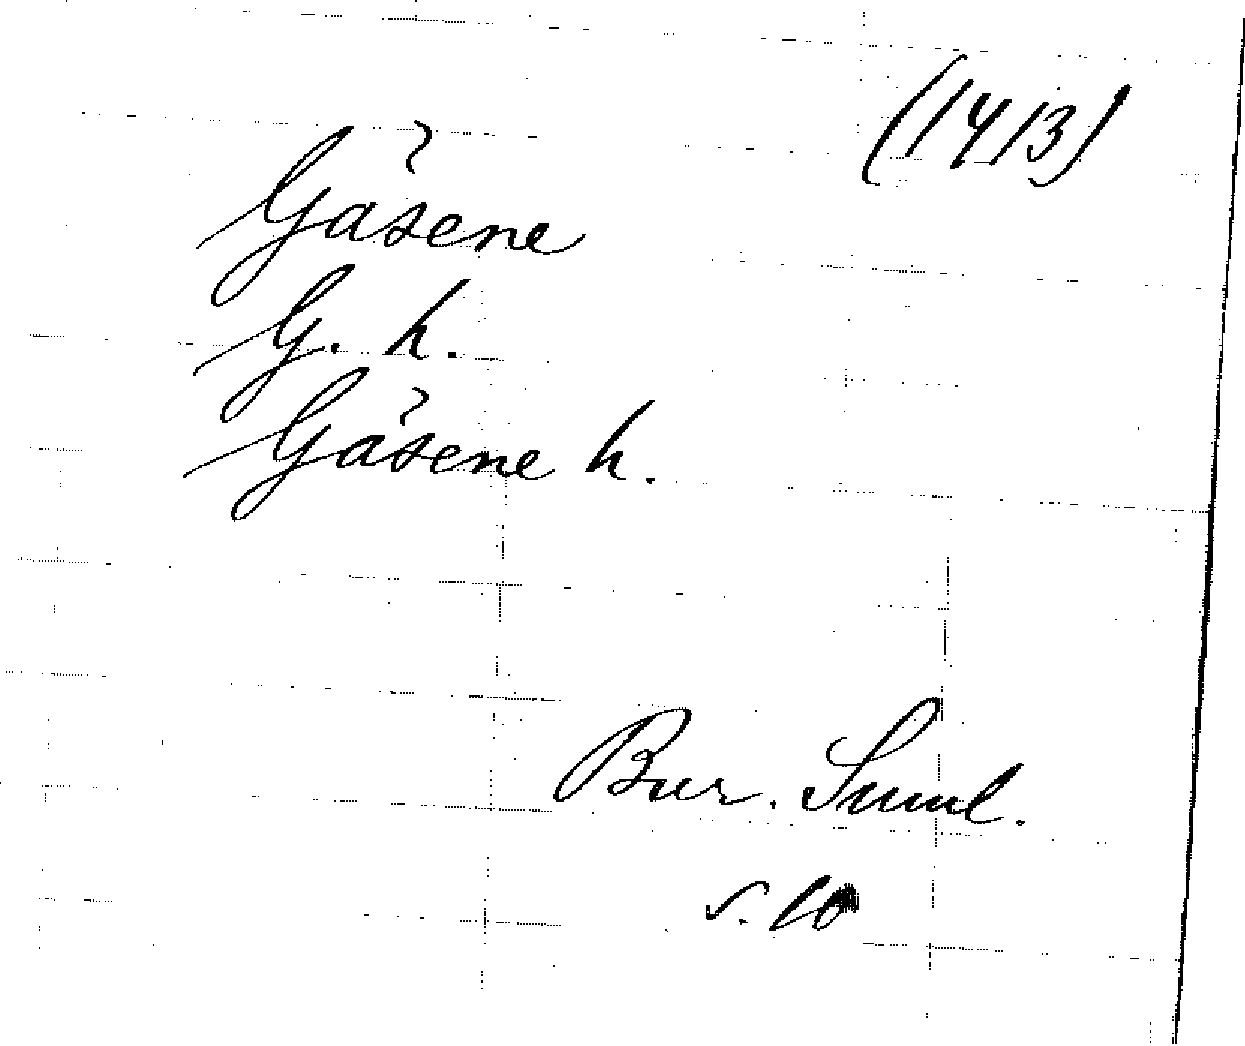 (1413)
Gäsene
G. h.
Gäsene h.
Bur. Suml.
s. 10